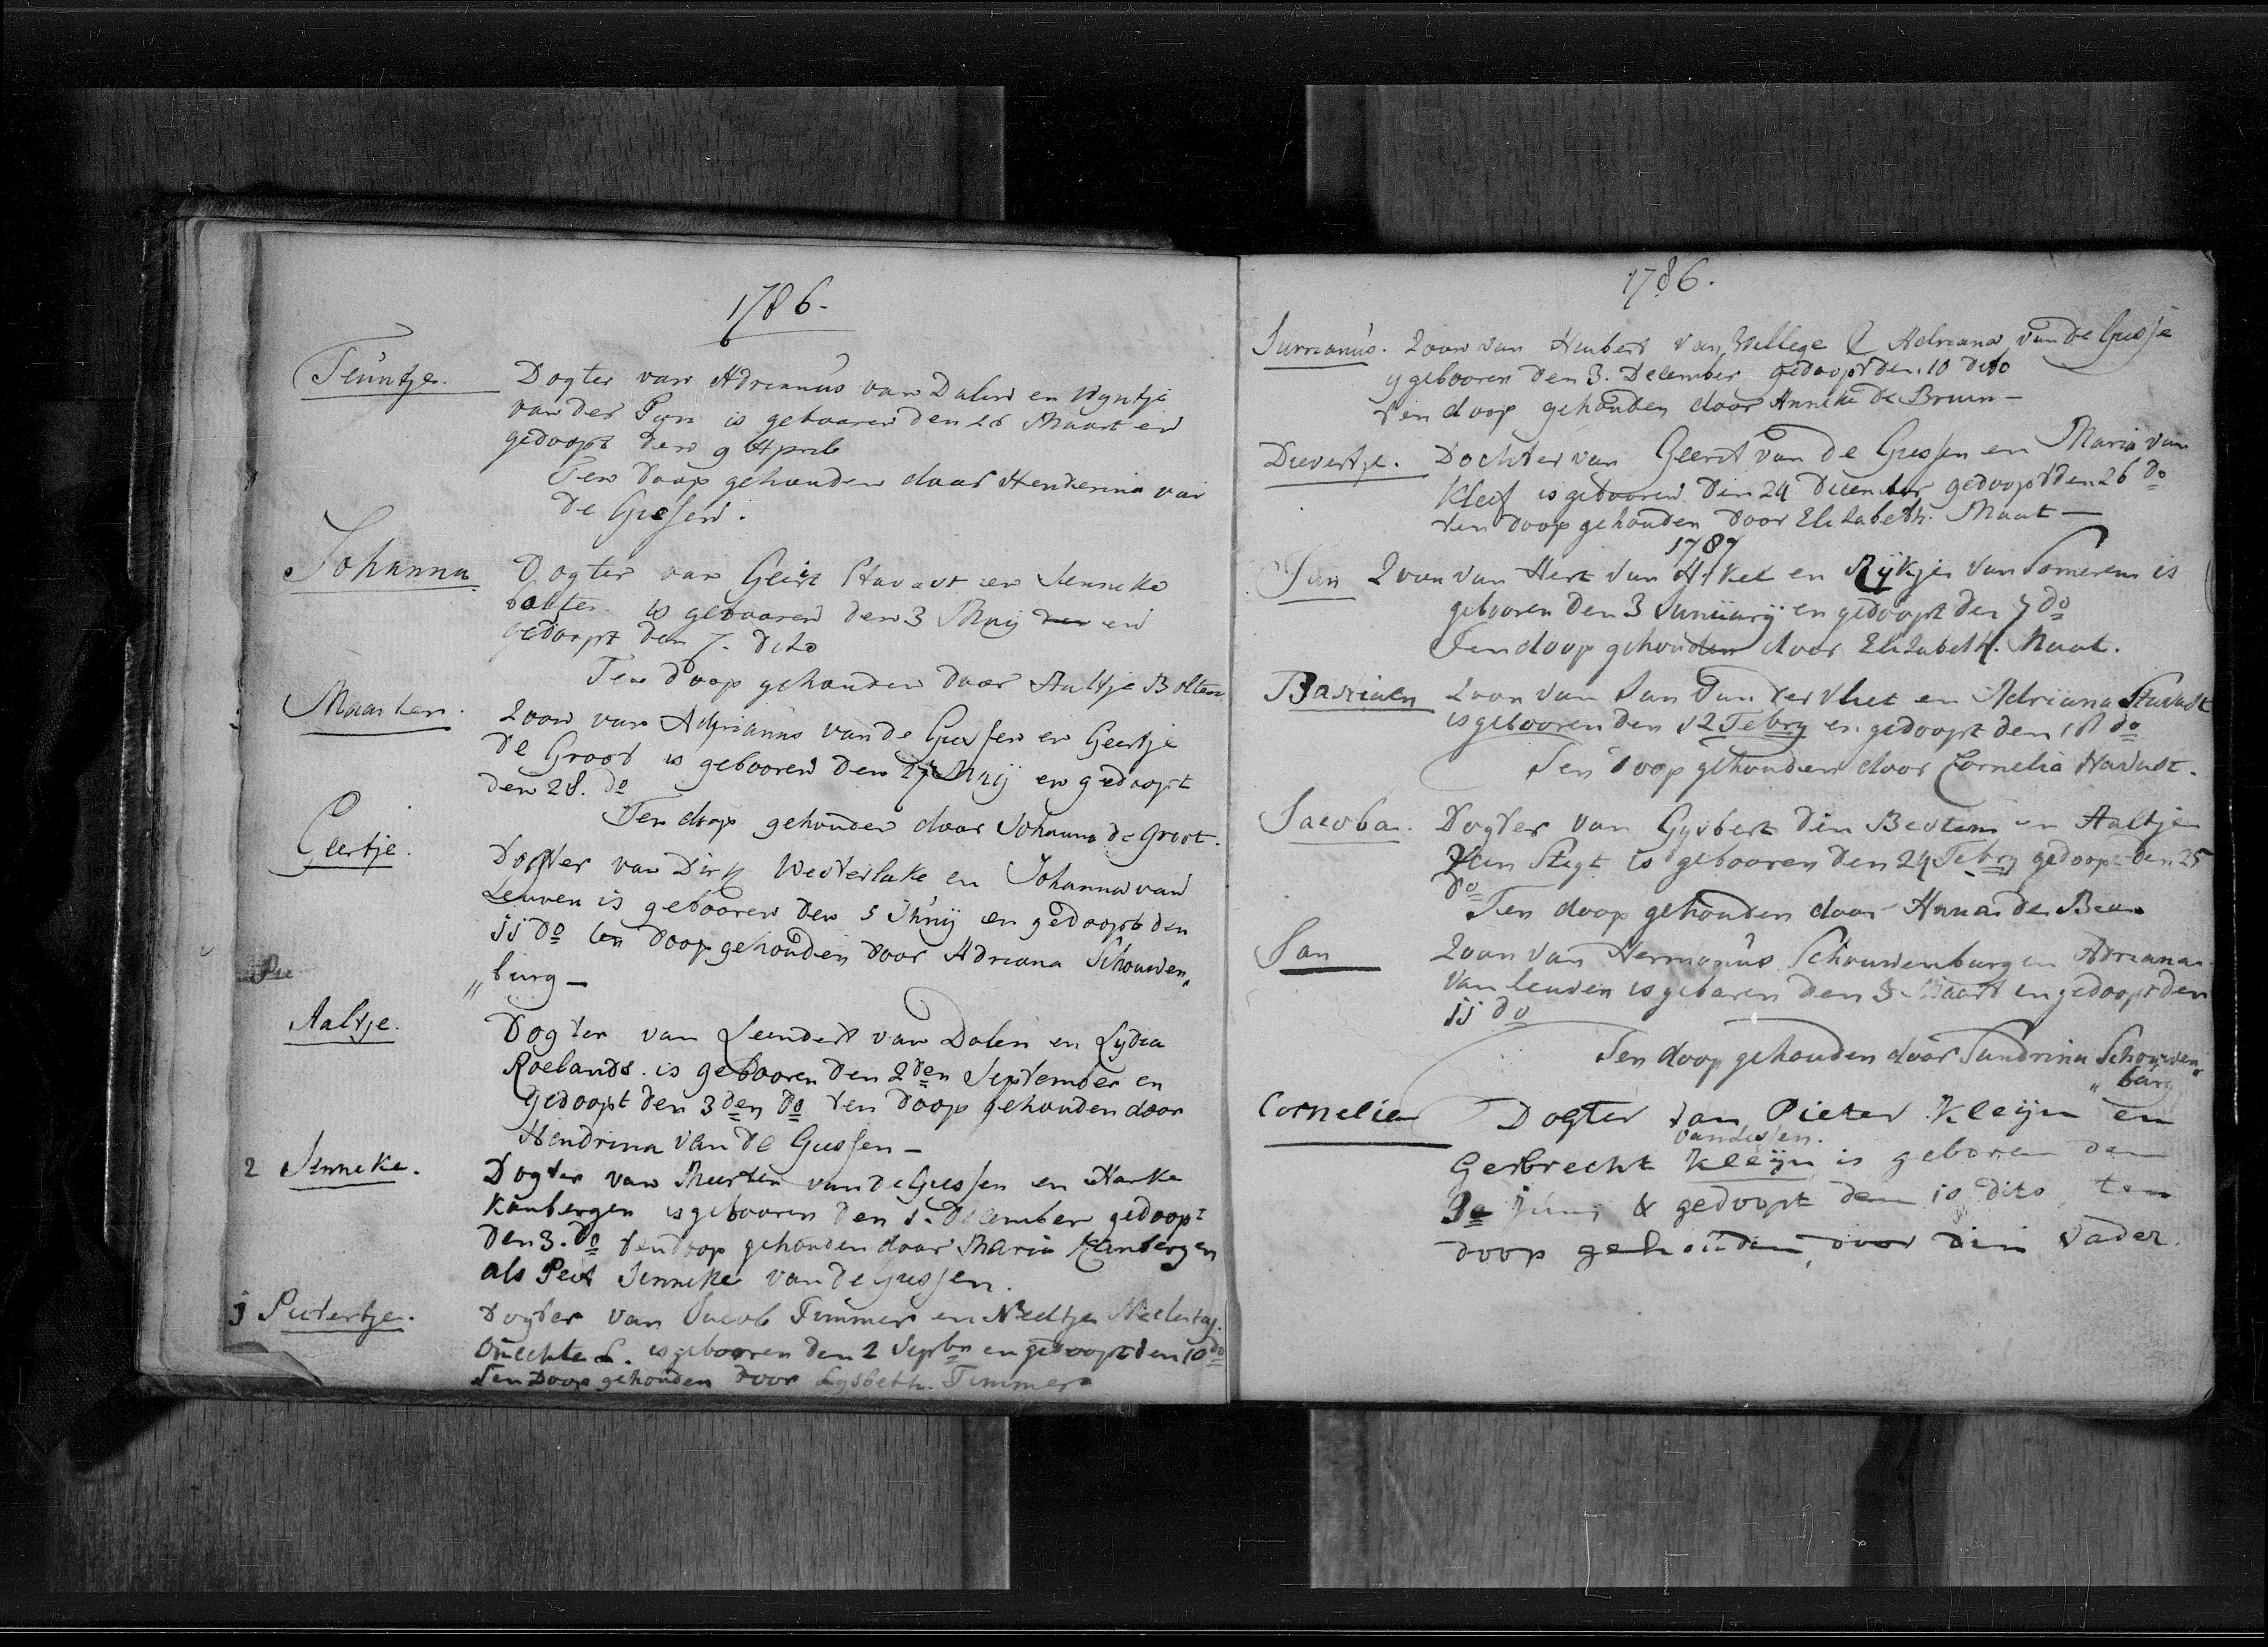 1786.
Teuntje. Dogter van Adrianus van Dalen en Wyntje
van der Pyn is gebooren den 26 Maart en
gedoopt den 9 April
Ten doop gehouden door Henderina van
de Giesen.
Johanna Dogter van Geirt Havaut en Jenneke
Bolten is gebooren den 3 Meij den en
gedoopt den 7. dito
Ten doop gehouden door Aaltje Bolten
Maarten. Zoon van Adrianus van de Giessen en Geertje
de Groot is gebooren den 27 Meij en gedoopt
den 28. do
Ten doop gehouden door Johanna de Groot.
Geertje. Dogter van Dirk Westerlake en Johanna van
Leuven is gebooren den 5 Junij en gedoopt den
11 do ten doop gehouden door Adriana Schouwen„
„burg –
Pie
Aaltje. Dogter van Leendert van Dalen en Lydia
Roelands. is gebooren den 2den September en
gedoopt den 3den do ten doop gehouden door
Hendrina van de Giessen –
2 Jenneke. Dogter van Meerten van de Giessen en Harke
Kanbergen is gebooren den 1. December gedoopt
den 3. do ten doop gehouden door Maria Kanbergen
als Peet Jenneke van de Giessen.
j Pietertje. Dogter van Jacob Timmer en Neeltje
onechte L. is gebooren den 2 Septbr en gedoopt den 10 do
Ten Doop gehouden door Lysbeth. Timmer
1786.
Jurrianus. Zoon van Huibert van Willege & Adriana van de Giesse
gebooren den 3. December gedoopt den 10 dito
ten doop gehouden door Anneke de Bruin –
Dievertje. Dochter van Geerit van de Giessen en Maria van
Kleef is gebooren den 24 December gedoopt den 26 do
ten doop gehouden door Elizabeth. Maat –
1787
Jan Zoon van Hert van Arkel en Rijkje van Someren is
gebooren den 3 Januarij en gedoopt den 7 do
Ten doop gehouden door Elizabeth. Maat.
Bastiaen Zoon van Jan van der Vliet en Adriana Havadt
is gebooren den 12 Febry en gedoopt den 18 do
Ten doop gehouden door Cornelia Havadt.
Jacoba. Dogter van Gysbert den Besten en Aaltje
van Stegt is gebooren den 24 Febry gedoopt den 25
do
Ten doop gehouden door Anna den
Jan Zoon van Hermanus Schouwenburg en Adriana
van Leuven is gebaren den 3 Maart en gedoopt den
11 do
Ten doop gehouden door Sandrina Schouwen„
„burg
Cornelia Dogter van Pieter Kleijn en
van Lessen.
Gerbrecht Kleijn is geboren den
3e juni & gedoopt den 10 dito, ten
doop gehouden, door din Vader.